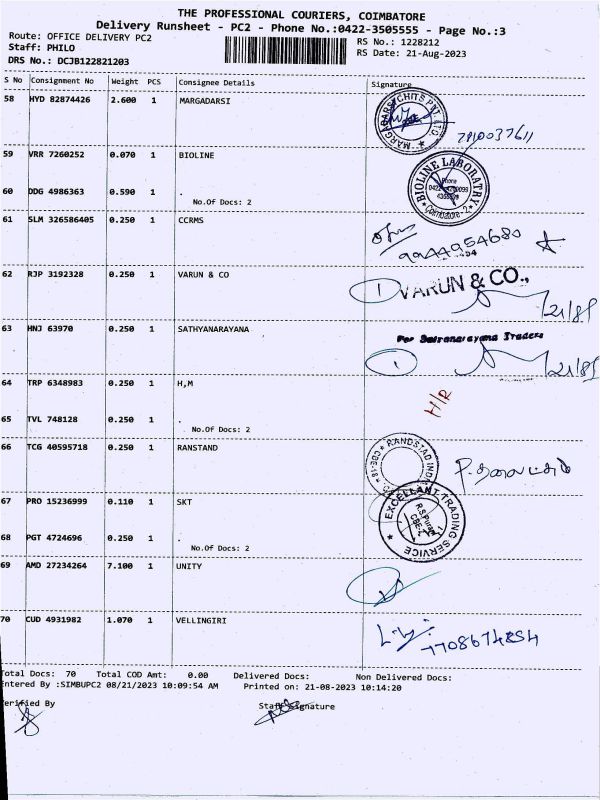 THE PROFESSIONAL COURIERS, COIMBATORE
Delivery Runsheet - PC2 - Phone No.:0422-3505555 - Page No.:3
Route: OFFICE DELIVERY PC2
RS No.: 1228212
Staff: PHILO
RS Date: 21-Aug-2023
DRS No.: DCJB122821203
S No Consignment No Weight PCS Consignee Details Signature
58 HYD 82874426 2.600 1 MARGADARSI
MARGADARSI CHITS PVT. LTD
7910037611
59 VRR 7260252 0.070 1 BIOLINE
BIOLINE LABORATRY
Phone
Coimbatore - 2
60 DDG 4986363 0.590 1
No.Of Docs: 2
61 SLM 326586405 0.250 1 CCRMS
9944954680
62 RJP 3192328 0.250 1 VARUN & CO
1 VARUN & CO.,
63 HNJ 63970 0.250 1 SATHYANARAYANA
For Satranarayana Traders
1
64 TRP 6348983 0.250 1 H,M
H/R
65 TVL 748128 0.250 1 .
No.Of Docs: 2
66 TCG 40595718 0.250 1 RANSTAND
67 PRO 15236999 0.110 1 SKT
EXCELLANT TRADING SERVICE
R.S.Puram
68 PGT 4724696 0.250 1 .
No.Of Docs: 2
69 AMD 27234264 7.100 1 UNITY
70 CUD 4931982 1.070 1 VELLINGIRI
7708674854
Total Docs: 70 Total COD Amt: 0.00 Delivered Docs: Non Delivered Docs:
Entered By :SIMBUPC2 08/21/2023 10:09:54 AM Printed on: 21-08-2023 10:14:20
erified By Staff Signature